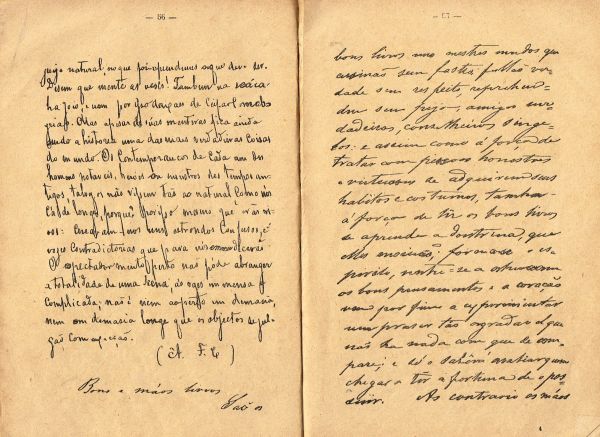 — 56 —
juizo natural, no que por apendimos o que deve ser.
Dizem que mente às vezes! Tambem na
ha joio, e nem por isso
Mas apesar de suas mentiras fica ainda
sendo a historia uma das mais verdadeiras coisas
do mundo. Os Contemporaneos de Cada um dos
homens notaveis, herois ou monstros dos tempos an-
tigos, talvez os não vissem tão ao natural Como nós
Cá de longe, porquê? Por isso mesmo que vrás n-
sos: Cegavam-nos uns estrondos Confusos, e
vozes Contradictorias que para nós emmudecerão
O espectador muito perto não póde abranger
a totalidade de uma scena, ás vezes immensa e
Complicada; não é nem ao perto em demasia,
nem em demasia longe que os objectos se jul-
gão Com
(A. F. C)
Bons e máos livros
São os
— 57 —
bons livros uns mestres mudos que
ensinão sem fastio, fallão ver-
dade sem respeito, reprehen-
dem sem pejo, amigos ver-
dadeiros, conselheiros singe-
los: e assim como á força de
tratar com pessoas honestas
e virtuosas se adquirem seus
habitos e costumes, tambem
á força de ler os bons livros
se aprende a doutrina, que
elles ensinão, forma-se o es-
pirito, nutre-se a alma com
os bons pensamentos e o coração
vem por fim a experimentar
um prazer tão agradavel que
não ha nada com que se com-
pare; e só o sabem avaliar quem
chegar a ter a fortuna de o pos-
suir. Ao contrario os máos